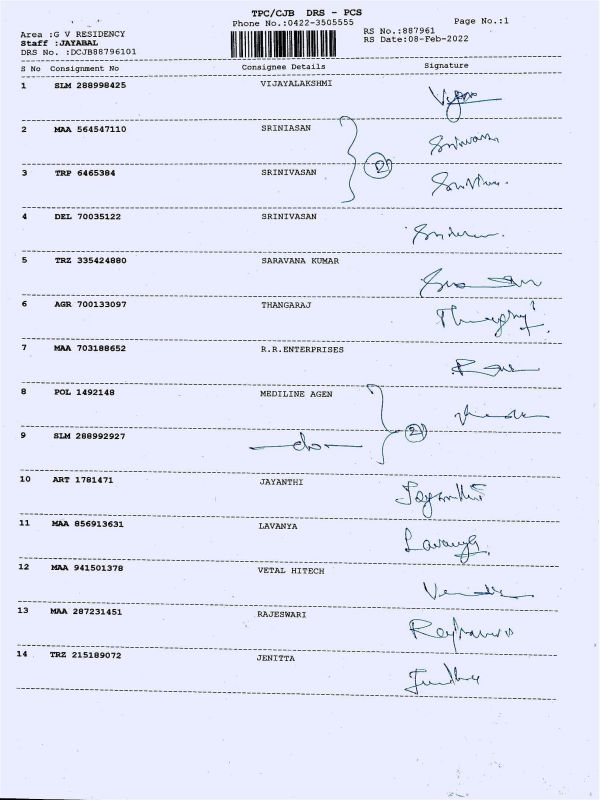 TPC/CJB DRS - PCS
Phone No.:0422-3505555
Page No.:1
Area :G V RESIDENCY
RS No.:887961
Staff :JAYABAL
RS Date:08-Feb-2022
DRS No. :DCJB88796101
S No Consignment No Consignee Details Signature
1 SLM 288998425 VIJAYALAKSHMI
2 MAA 564547110 SRINIASAN
2
3 TRP 6465384 SRINIVASAN
4 DEL 70035122 SRINIVASAN
5 TRZ 335424880 SARAVANA KUMAR
6 AGR 700133097 THANGARAJ
7 MAA 703188652 R.R.ENTERPRISES
8 POL 1492148 MEDILINE AGEN
2
9 SLM 288992927 -do-
10 ART 1781471 JAYANTHI Jayanthi
11 MAA 856913631 LAVANYA Lavanya
12 MAA 941501378 VETAL HITECH
13 MAA 287231451 RAJESWARI
14 TRZ 215189072 JENITTA